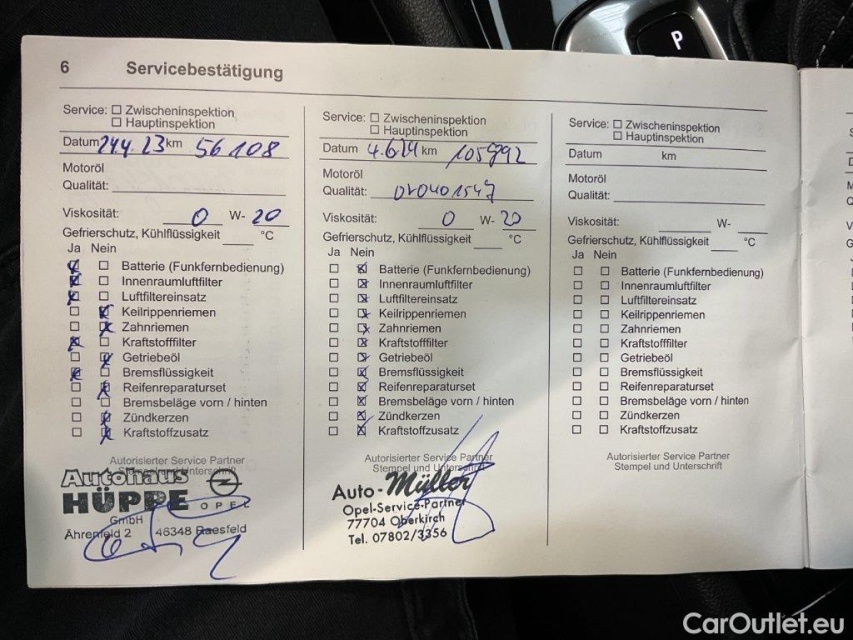 P
6 Servicebestätigung
Service: ☐ Zwischeninspektion
☐ Hauptinspektion
Datum 24.4.23 km 56108
Motoröl
Qualität:
Viskosität: 0 W- 20
Gefrierschutz, Kühlflüssigkeit °C
Ja Nein
☒ ☐ Batterie (Funkfernbedienung)
☒ ☐ Innenraumluftfilter
☒ ☐ Luftfiltereinsatz
☐ ☒ Keilrippenriemen
☐ ☒ Zahnriemen
☒ ☐ Kraftstofffilter
☐ ☒ Getriebeöl
☒ ☐ Bremsflüssigkeit
☐ ☒ Reifenreparaturset
☐ ☐ Bremsbeläge vorn / hinten
☐ ☒ Zündkerzen
☐ ☒ Kraftstoffzusatz
Autorisierter Service Partner
Stempel und Unterschrift
Autohaus
HÜPPE OPEL
GmbH
Ährenfeld 2 46348 Raesfeld
Service: ☐ Zwischeninspektion
☐ Hauptinspektion
Datum 4.6.24 km 105992
Motoröl
Qualität: OV0401547
Viskosität: 0 W- 20
Gefrierschutz, Kühlflüssigkeit °C
Ja Nein
☐ ☒ Batterie (Funkfernbedienung)
☐ ☒ Innenraumluftfilter
☐ ☒ Luftfiltereinsatz
☐ ☒ Keilrippenriemen
☐ ☒ Zahnriemen
☐ ☒ Kraftstofffilter
☐ ☒ Getriebeöl
☐ ☒ Bremsflüssigkeit
☐ ☒ Reifenreparaturset
☐ ☒ Bremsbeläge vorn / hinten
☐ ☒ Zündkerzen
☐ ☒ Kraftstoffzusatz
Autorisierter Service Partner
Stempel und Unterschrift
Auto-Müller
Opel-Service-Partner
77704 Oberkirch
Tel. 07802/3356
Service: ☐ Zwischeninspektion
☐ Hauptinspektion
Datum km
Motoröl
Qualität:
Viskosität: W-
Gefrierschutz, Kühlflüssigkeit °C
Ja Nein
☐ ☐ Batterie (Funkfernbedienung)
☐ ☐ Innenraumluftfilter
☐ ☐ Luftfiltereinsatz
☐ ☐ Keilrippenriemen
☐ ☐ Zahnriemen
☐ ☐ Kraftstofffilter
☐ ☐ Getriebeöl
☐ ☐ Bremsflüssigkeit
☐ ☐ Reifenreparaturset
☐ ☐ Bremsbeläge vorn / hinten
☐ ☐ Zündkerzen
☐ ☐ Kraftstoffzusatz
Autorisierter Service Partner
Stempel und Unterschrift
CarOutlet.eu